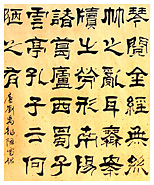 琴閱金經無絲
竹之亂耳無案
牘之勞形南陽
諸葛廬西蜀子
雲亭孔子云何
陋之有
劉禹錫陋室銘